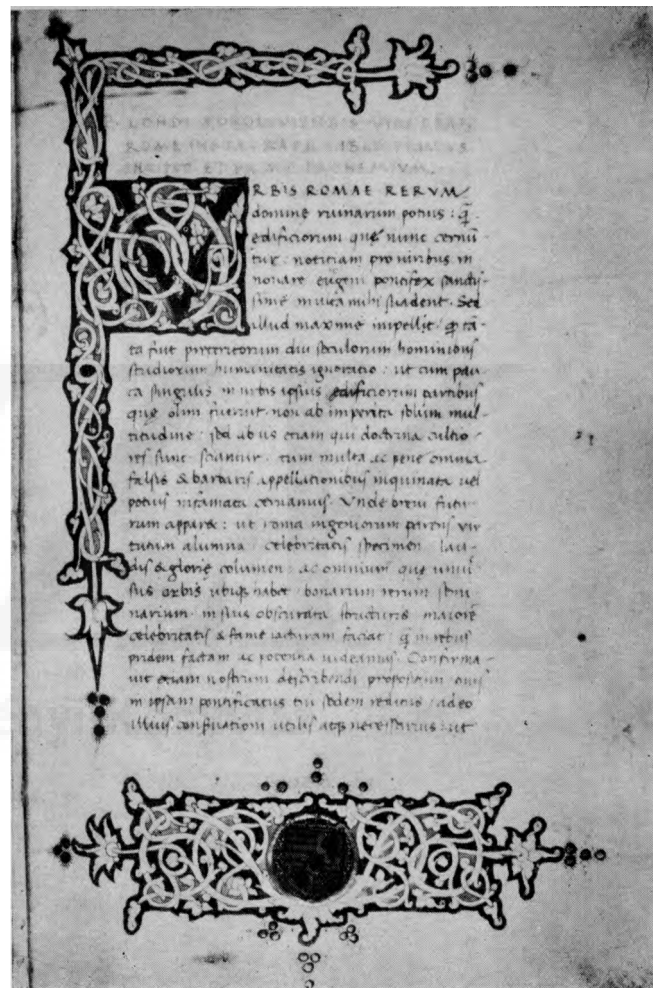 BLONDI FOROLIVIENSIS VIRI CLAR.
ROME INSTAVRATE LIBER PRIMVS
INCIPIT ET PRIMO PROHEMIVM.
VRBIS ROMAE RERVM
domine ruinarum potius : q̃
edificiorum que nunc cernũ
tur : noticiam pro viribus in
novare eugeni pontifex sancti
sime multa mihi suadent. Sed
illud maxime impellit. q̃ tã
ta fuit preteritorum diu seculorum hominibus
studiorum humanitatis ignoratio : ut cum pau
ca singulis in urbis ipsius edificiorum partibus
que olim fuerint non ab imperita solum mul
titudine : sed ab iis etiam qui doctrina cultio
res sunt sciantur. tum multa ac pene omnia
falsis & barbaris appellationibus inquinata vel
potius infamata cernamus. Unde brevi futu
rum apparet : ut roma ingeniorum parens vir
tutum alumna celebritatis specimen lau
dis & glorie columen : ac omnium que univer
sus orbis ubiq habet bonarum rerum semi
narium. in suis obscurata structuris maiorẽ
celebritatis & fame iacturam faciat : q̃ in rebus
pridem factam ac potentia videamus. Confirma
vit etiam nostrum describendi propositum
in ipsam pontificatus tui sedem reditus adeo
illius conservationi utilis atq necessarius : ut